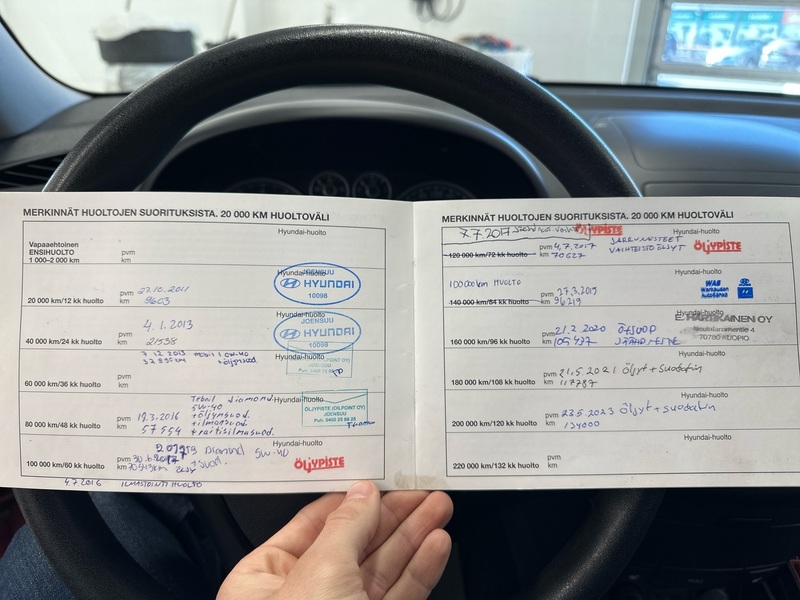 MERKINNÄT HUOLTOJEN SUORITUKSISTA. 20 000 KM HUOLTOVÄLI
Hyundai-huolto
Vapaaehtoinen
ENSIHUOLTO
1 000–2 000 km
pvm
km
Hyundai-huolto
20 000 km/12 kk huolto
pvm 27.10.2011
km 9603
JOENSUU
HYUNDAI
10098
40 000 km/24 kk huolto
4.1.2013
km 21538
JOENSUU
HYUNDAI
10098
60 000 km/36 kk huolto
7.12.2013
km
0W-40
+ öljynsuod.
80 000 km/48 kk huolto
pvm 19.3.2016
km 57554
Total diamond
5W-40
+ öljynsuod.
+ ilmansuod.
+ raitisilmasuod.
Hyundai-huolto
ÖLJYPISTE (OILPOINT OY)
JOENSUU
100 000 km/60 kk huolto
pvm
km
Diamond 5W-40
+ suod.
Hyundai-huolto
ÖLJYPISTE
4.7.2016 ILMASTOINTI HUOLTO
MERKINNÄT HUOLTOJEN SUORITUKSISTA. 20 000 KM HUOLTOVÄLI
7.7.2017
ÖLJYPISTE
Hyundai-huolto
120 000 km/72 kk huolto
pvm 4.7.2017
km 70627
JARRUNESTEET
VAIHTEISTOÖLJYT
ÖLJYPISTE
100000km HUOLTO
140 000 km/84 kk huolto
pvm 27.3.2019
km 96219
Hyundai-huolto
WAB
Warkauden
Autopörssi
160 000 km/96 kk huolto
pvm 21.2.2020
km 105477
ÖLJYT
JÄÄHD. NESTE
Hyundai-huolto
E. HARTIKAINEN OY
70780 KUOPIO
180 000 km/108 kk huolto
pvm 21.5.2021
km 117787
Öljyt + suodatin
Hyundai-huolto
200 000 km/120 kk huolto
pvm 23.5.2023
km 134000
Öljyt + suodatin
Hyundai-huolto
220 000 km/132 kk huolto
pvm
km
Hyundai-huolto